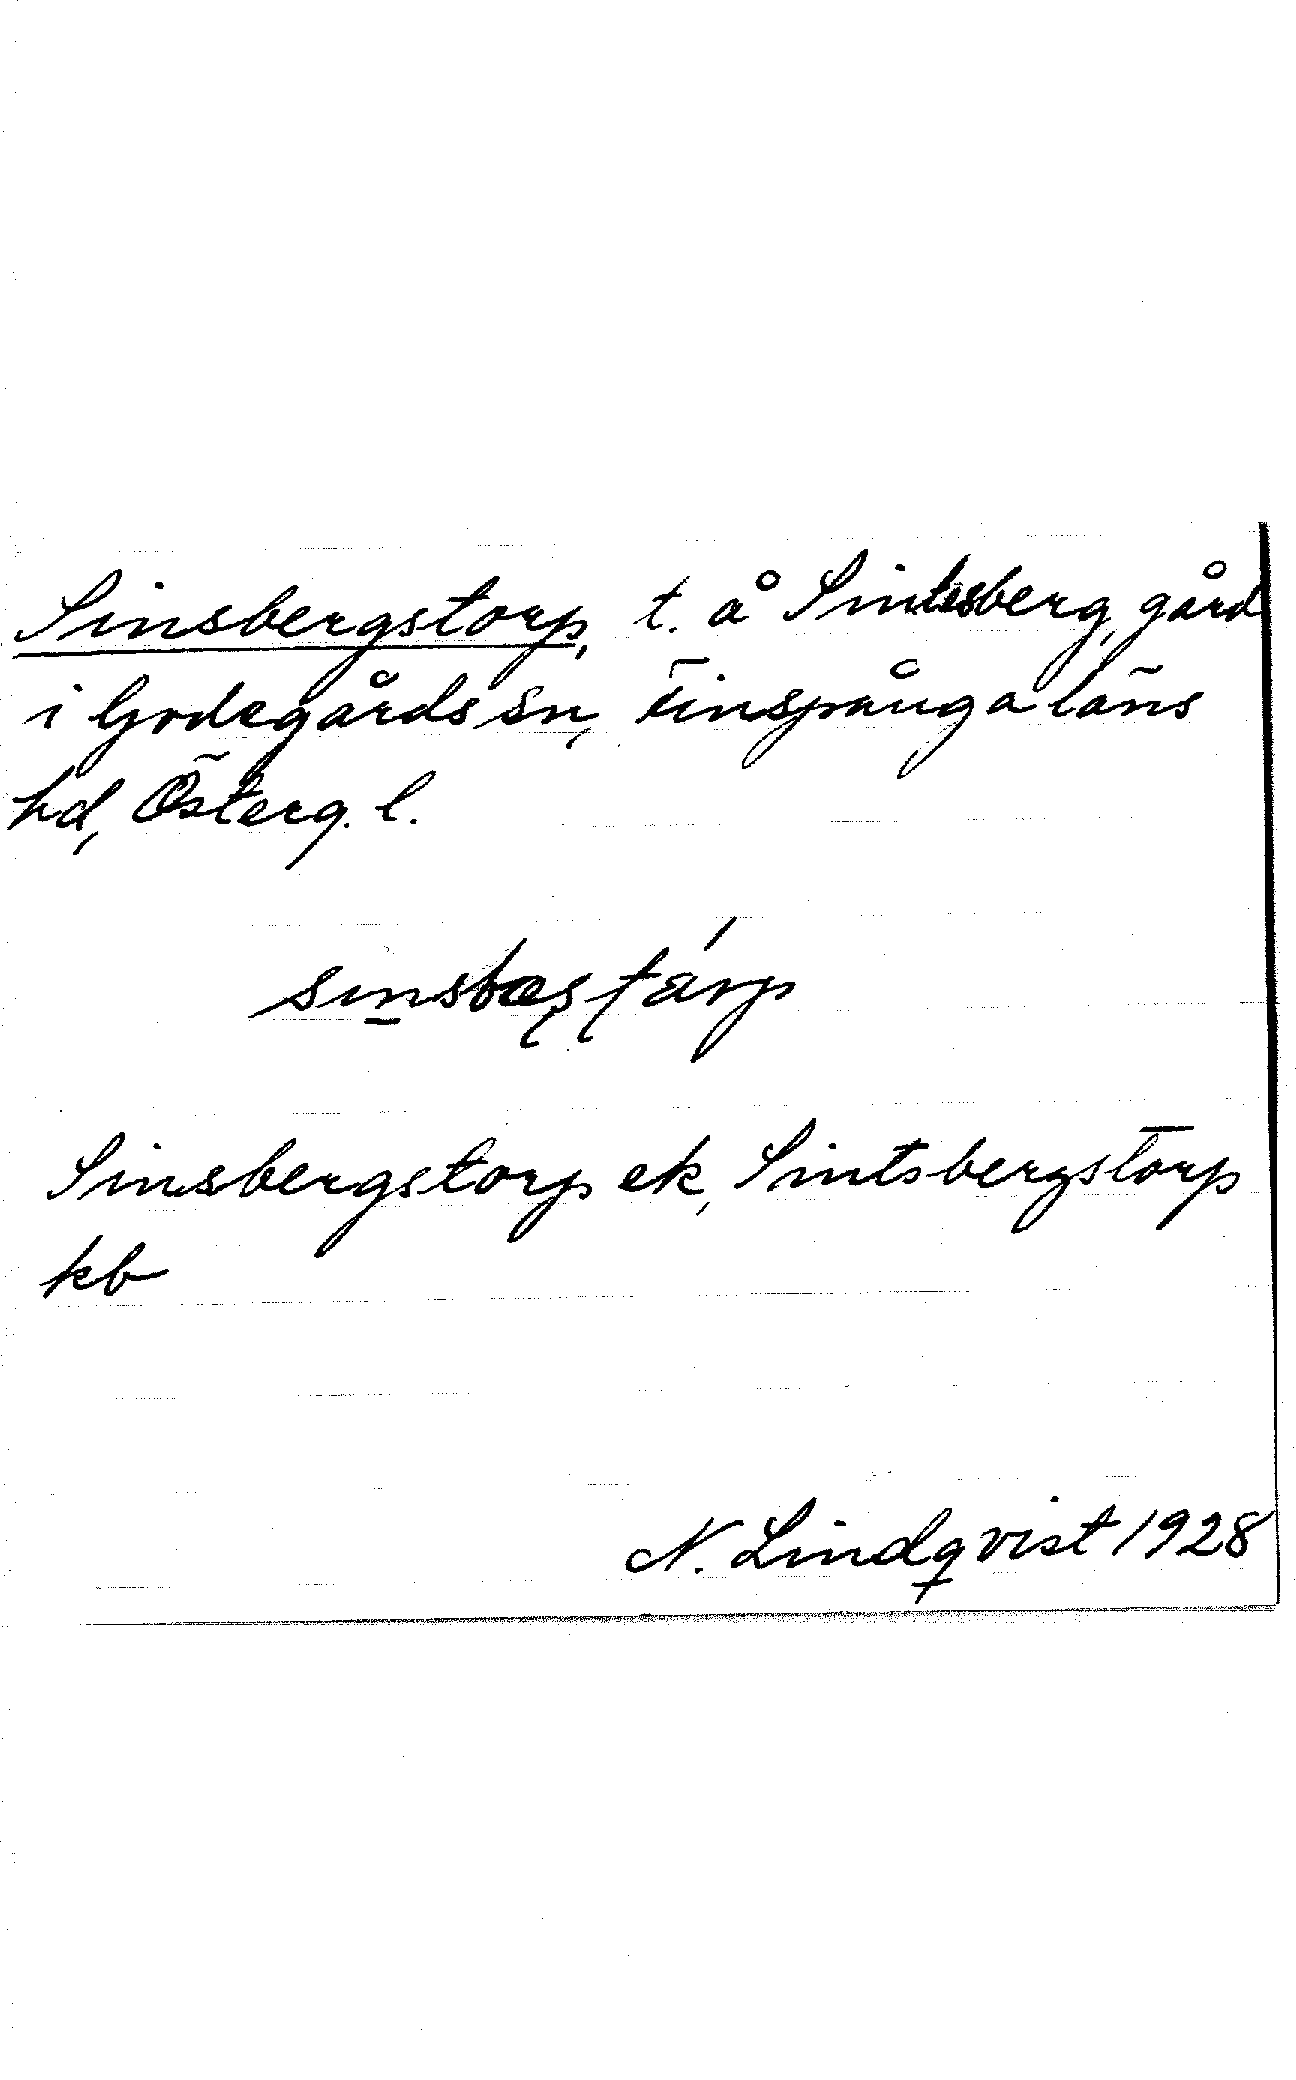 Sinsbergstorp, t. å Sintesberg, gård
i Godegårds sn, Finspånga läns
hd, Österg. l.
Sinsbergstorp ek, Sintsbergstorp
kb
N. Lindqvist 1928